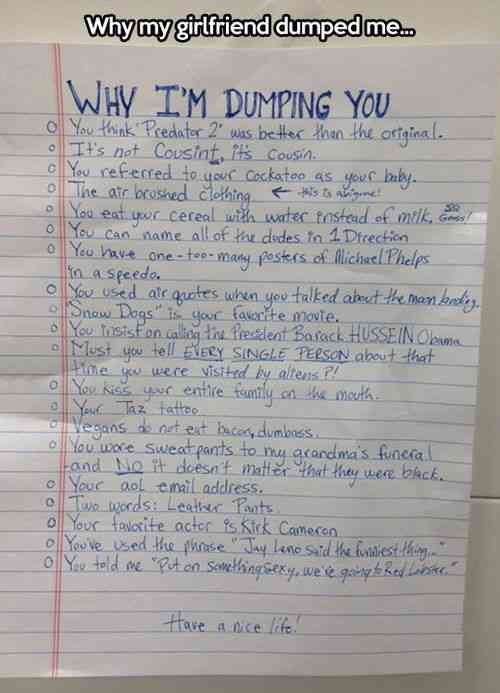 Why my girlfriend dumped me...
WHY I'M DUMPING YOU
You think "Predator 2" was better than the original.
It's not Cousint, it's cousin.
You referred to your Cockatoo as your baby.
The air brushed clothing ← this is a
You eat your cereal with water instead of milk. SOO Gross!
You can name all of the dudes in 1 Direction
You have one-too-many posters of Michael Phelps
in a speedo.
You used air quotes when you talked about the moon landing.
"Snow Dogs" is your favorite movie.
You insist on calling the President Barack HUSSEIN Obama
Must you tell EVERY SINGLE PERSON about that
time you were visited by aliens?!
You kiss your entire family on the mouth.
Your Taz tattoo
Vegans do not eat bacon, dumbass.
You wore sweatpants to my grandma's funeral
and NO it doesn't matter that they were black.
Your aol email address.
Two words: Leather Pants
Your favorite actor is Kirk Cameron
You've used the phrase "Jay Leno said the funniest thing..."
You told me "Put on something sexy, we're going to Red Lobster."
Have a nice life!